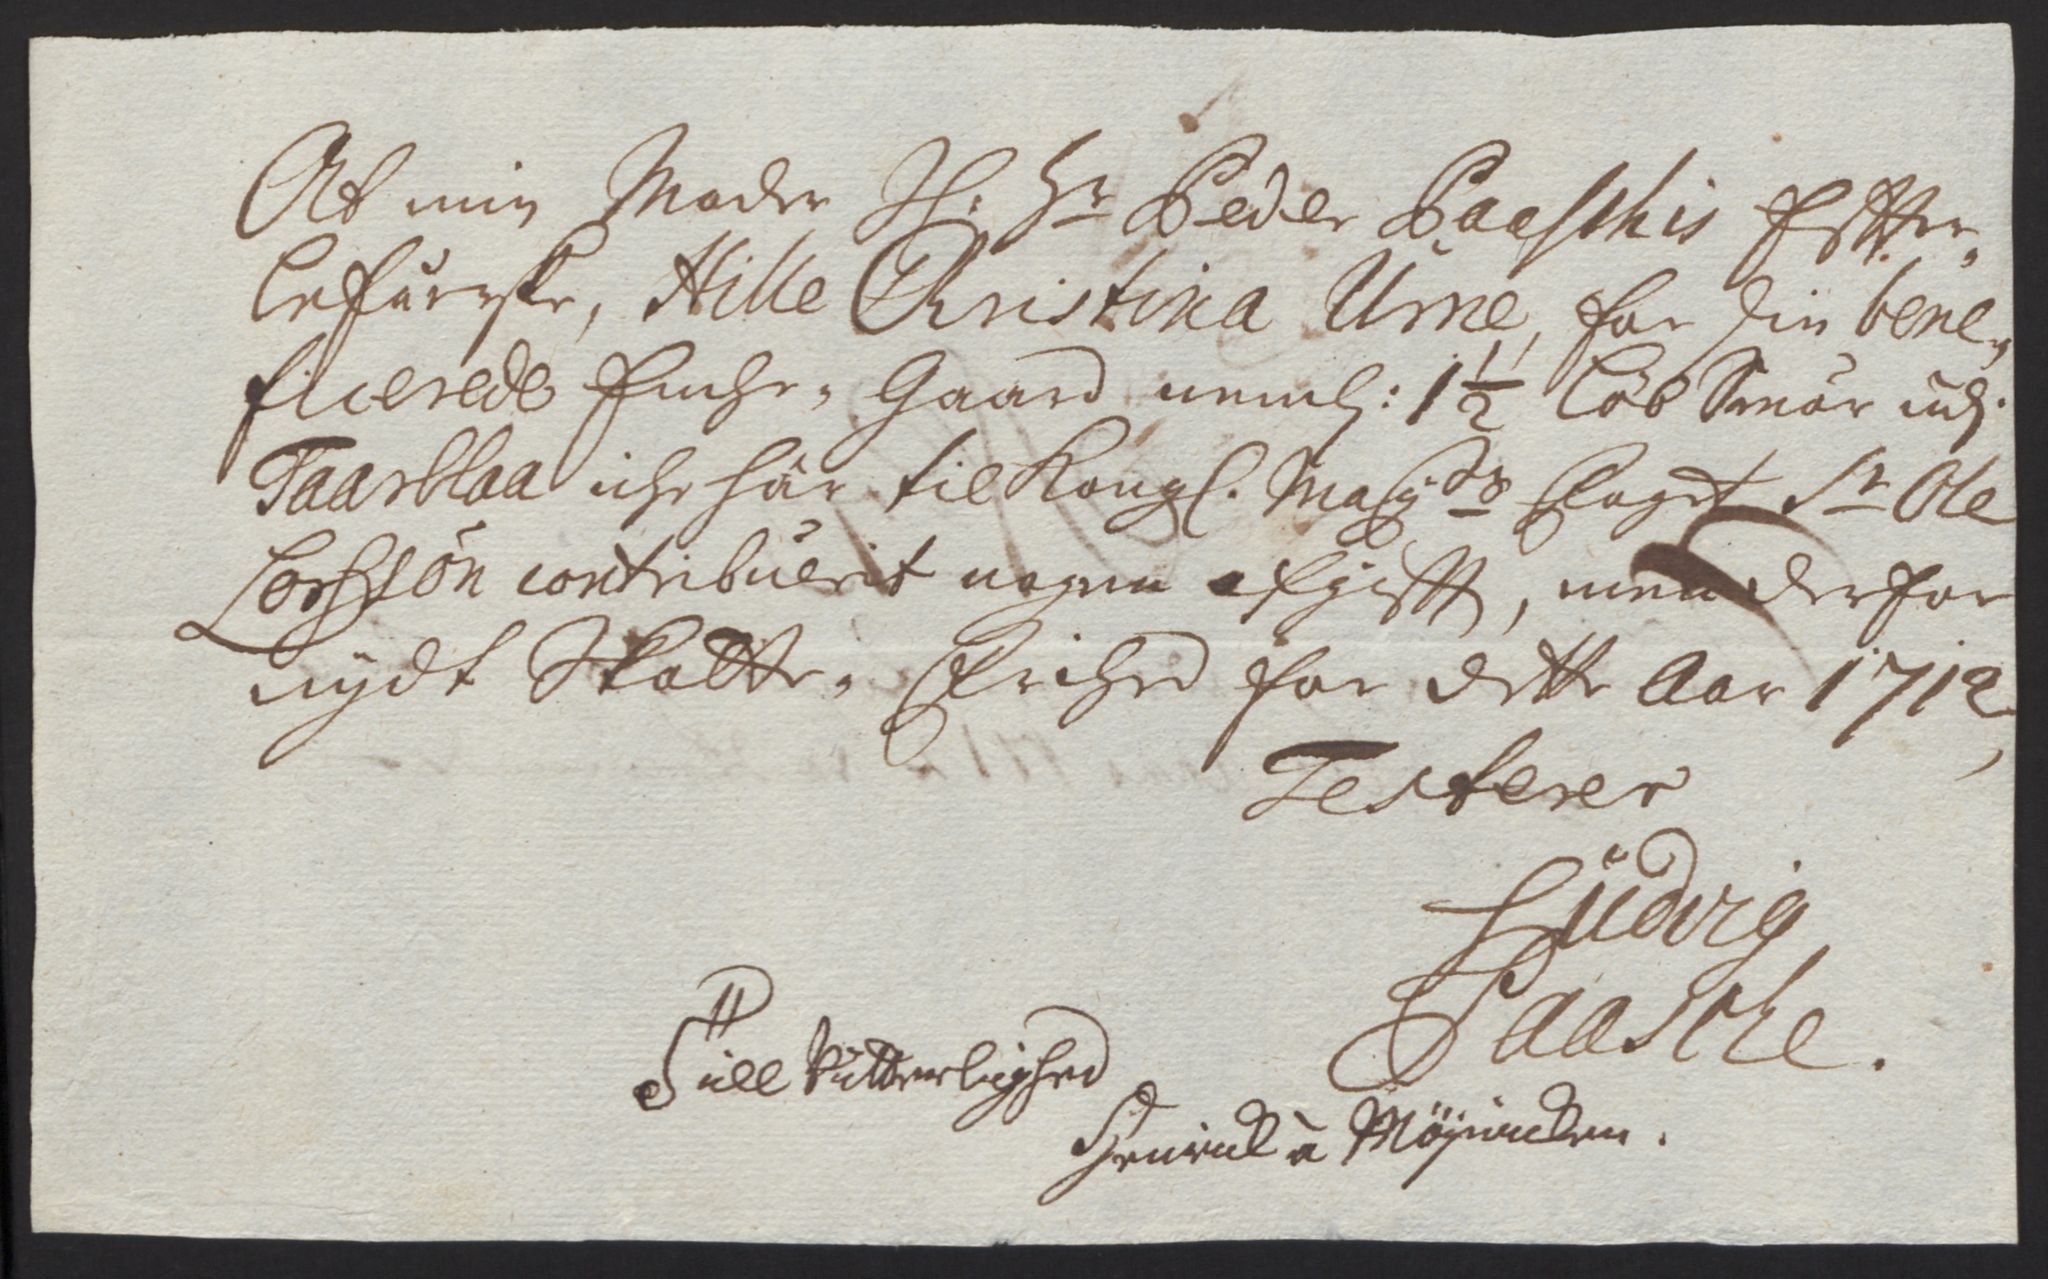 At min Moder Sl: Hr Peder Paaschis Efter-
lefuerske, Hille Christina Urne, for sin bene-
ficerede Enche-Gaard nemlig: 1 1/2 Løb Smör udj
Taarblaa iche har til Kongl. Mayts Foget Sr Ole
Larssön contribuerit nogen afgift, men derfor
nydt Skatte-Frihed for dette Aar 1712,
Testerer
Lüdvig
Paasche.
Till Vitterlighed
Henrick à Möjnichen.